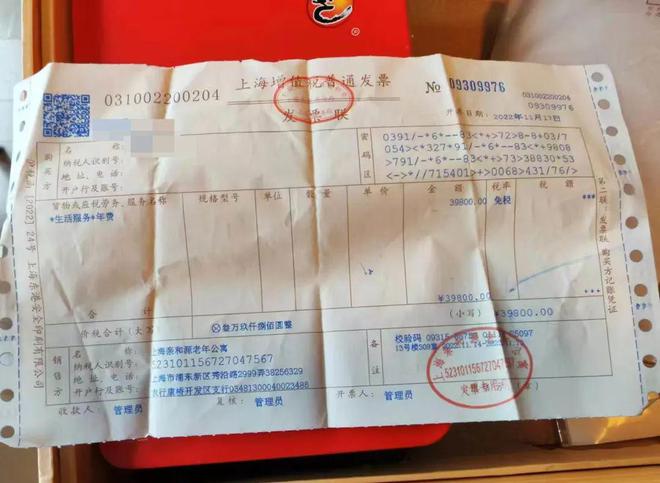 上海增值税普通发票
发票联
031002200204
№ 09309976
031002200204
09309976
开票日期：2022年11月17日
购买方
纳税人识别号：
地址、电话：
开户行及账号：
密码区
0391/-*6*--83<*+>72>8-8+03/7
054><*327*91/-*6*--83<*+9808
>791/-*6*--83<*+>73>38830*53
<->*//715401>+0068>431/76/>
货物或应税劳务、服务名称 规格型号 单位 数量 单价 金额 税率 税额
*生活服务*年费 39800.00 免税 ***
合计 ¥39800.00 ***
价税合计（大写） ⊗叁万玖仟捌佰圆整 （小写）¥39800.00
销售方
上海亲和源老年公寓
纳税人识别号：523101156727047567
地址、电话：上海市浦东新区秀沿路2999弄38256329
开户行及账号：农行康桥开发区支行03481300040023486
备注
校验码 09315
13号楼509室
收款人：管理员 复核：管理员 开票人：管理员
523101156727047567
第二联：发票联 购买方记账凭证
[2022]24号 上海东港安全印刷有限公司